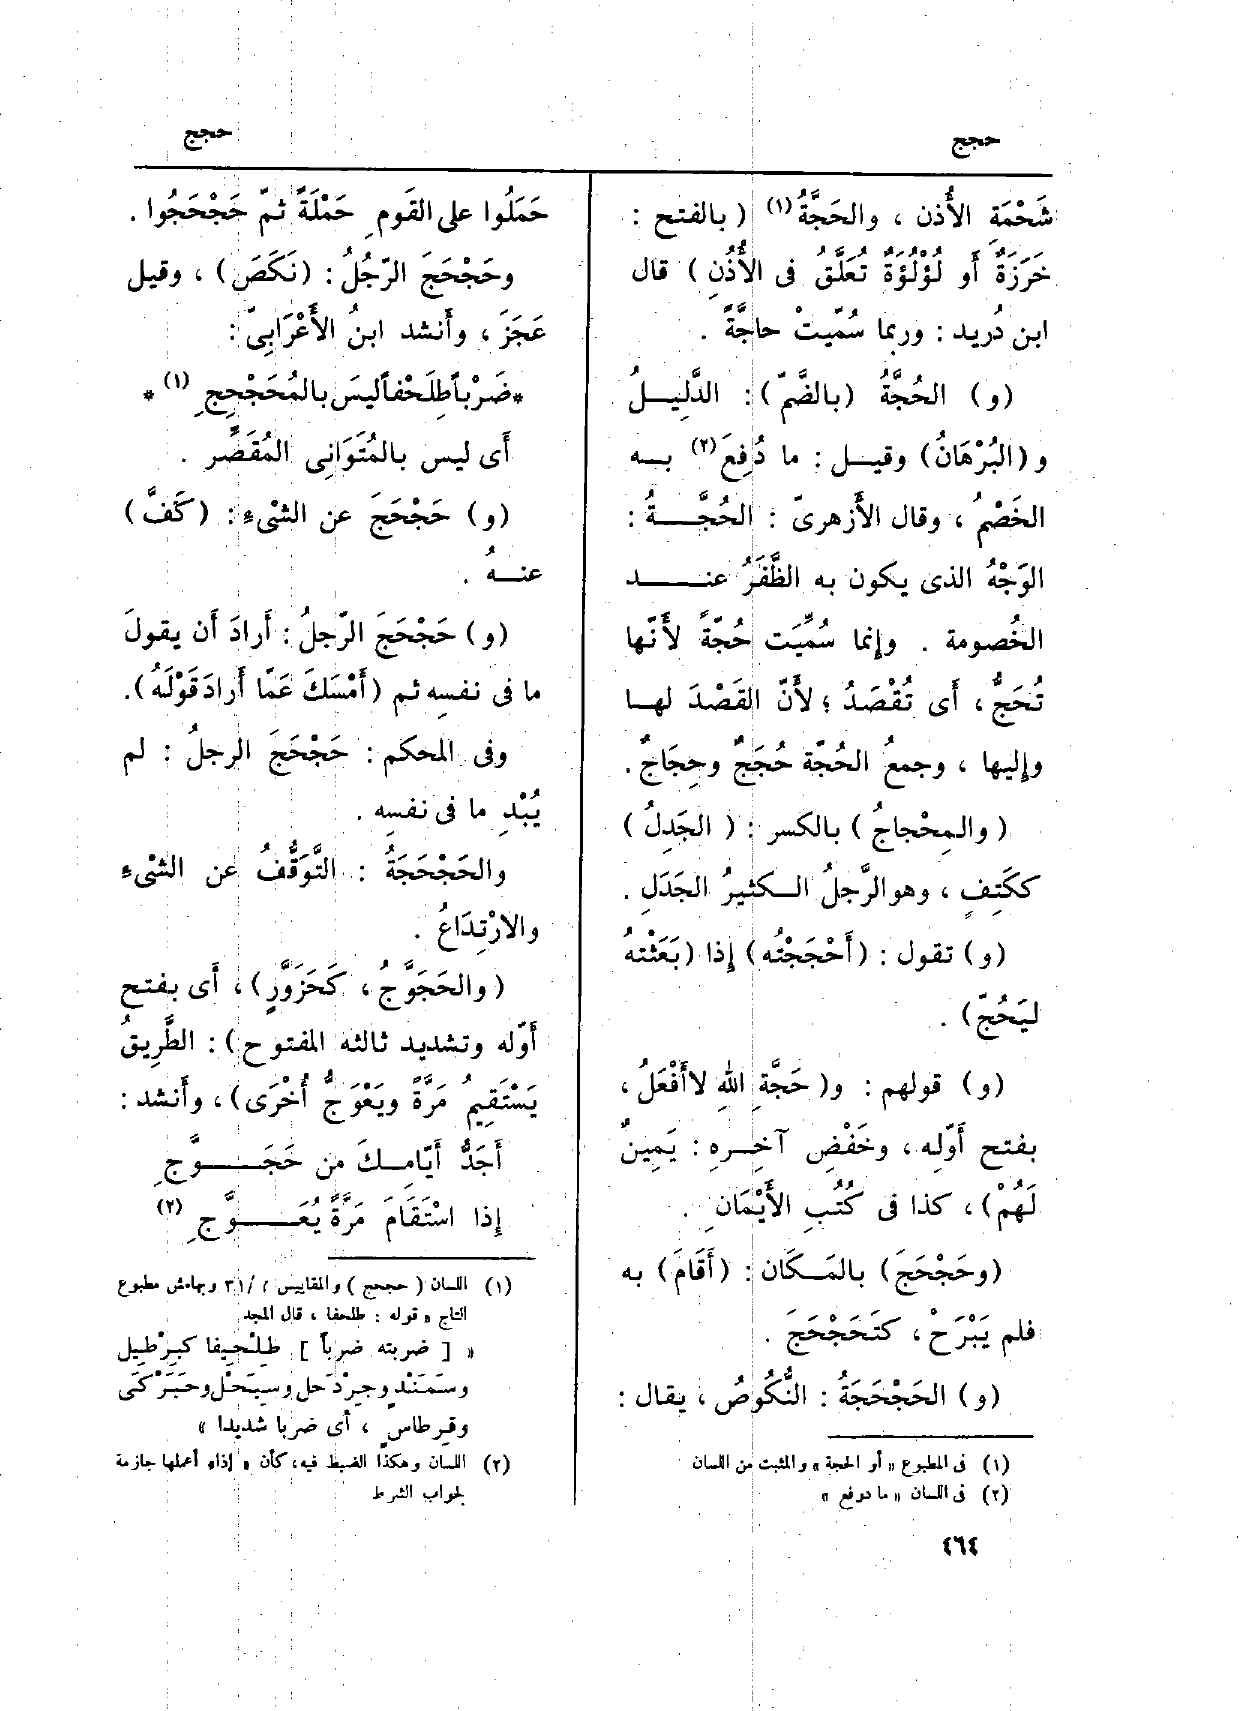 حجج
حجج
شَحْمَةِ الأُذن ، والحَجَّةُ (١) ( بالفتح :
خَرَزَةٌ أَو لُؤْلُؤَةٌ تُعَلَّقُ فى الأُذُنِ ) قال
ابن دُريد : وربما سُمِّيتْ حاجَّةً .
(و) الحُجَّةُ (بالضَّمّ) : الدَّلِيــلُ
و (البُرْهَانُ) وقيــل : ما دُفِعَ (٢) بــه
الخَصْمُ ، وقال الأَزهرىّ : الحُجَّــةُ :
الوَجْهُ الذى يكون به الظَّفَرُ عنــــد
الخُصومة . وإنما سُمِّيَت حُجَّةً لأَنَّها
تُحَجُّ ، أَى تُقْصَدُ ؛ لأَنّ القَصْدَ لهــا
وإليها ، وجمعُ الحُجّة حُجَجٌ وحِجَاجٌ .
( والمِحْجاجُ ) بالكسر : ( الجَدِلُ )
ككَتِفٍ ، وهو الرَّجلُ الــكثيرُ الجَدَلِ .
(و) تقول : (أَحْجَجْتُه) إذا (بَعَثْتهُ
ليَحُجّ) .
(و) قولهم : و( حَجَّةِ اللهِ لاأَفْعَلُ ،
بفتح أَوّله ، وخَفْضِ آخِــرِه : يَمِينٌ
لَهُمْ) ، كذا فى كُتُبِ الأَيْمَانِ .
(وحَجْحَجَ) بالمَــكَان : (أَقَامَ) به
فلم يَبْرَحْ ، كتَحَجْحَجَ .
(و) الحَجْحَجَةُ : النُّكُوصُ ، يقال :
(١) فى المطبوع « أو الحجة » والمثبت من اللسان
(٢) فى اللسان « ما دوفع »
حَمَلُوا على القَومِ حَمْلَةً ثمّ حَجْحَجُوا .
وحَجْحَجَ الرّجُلُ : (نَكَصَ) ، وقيل
عَجَزَ ، وأَنشد ابنُ الأَعْرَابِىّ :
* ضَرْباً طِلَحْفاً ليسَ بالمُحَجْحِجِ (١) *
أَى ليس بالمُتَوَانِى المُقَصِّر .
(و) حَجْحَجَ عن الشْىءِ : (كَفَّ )
عنــهُ .
(و) حَجْحَجَ الرّجلُ : أَرادَ أَن يقولَ
ما فى نفسِه ثم (أَمْسَكَ عَمّا أَرادَ قَوْلَهُ) .
وفى المحكم : حَجْحَجَ الرجلُ : لم
يُبْدِ ما فى نفسِه .
والحَجْحَجَةُ : التَّوَقُّفُ عن الشْىءِ
والارْتِدَاعُ .
( والحَجَوَّجُ ، كَحَزَوَّرٍ ) ، أَى بفتح
أَوّله وتشديد ثالثه المفتوح ) : الطَّرِيقُ
يَسْتَقِيمُ مَرَّةً ويَعْوَجُّ أُخْرَى ) ، وأَنشد :
أَجَدُّ أَيّامِــكَ من حَجَــــوَّجِ
إذا اسْتَقَامَ مَرَّةً يُعَــــوَّجِ (٢)
(١) اللسان ( حجحج ) والمقاييس ٢ /٣١ وبهامش مطبوع
التاج « قوله : طلحفا ، قال المجد
« [ ضربته ضرباً ] طِلْحِيفا كبِرْطيل
وسَمَنْدٍ وجِرْدَحل وسِبَحْل وحَبَرْكَى
وقِرطاسٍ ، أى ضربا شديدا »
(٢) اللسان وهكذا الضبط فيه ، كأن « إذا » أعملها جازمة
لجواب الشرط
٤٦٤